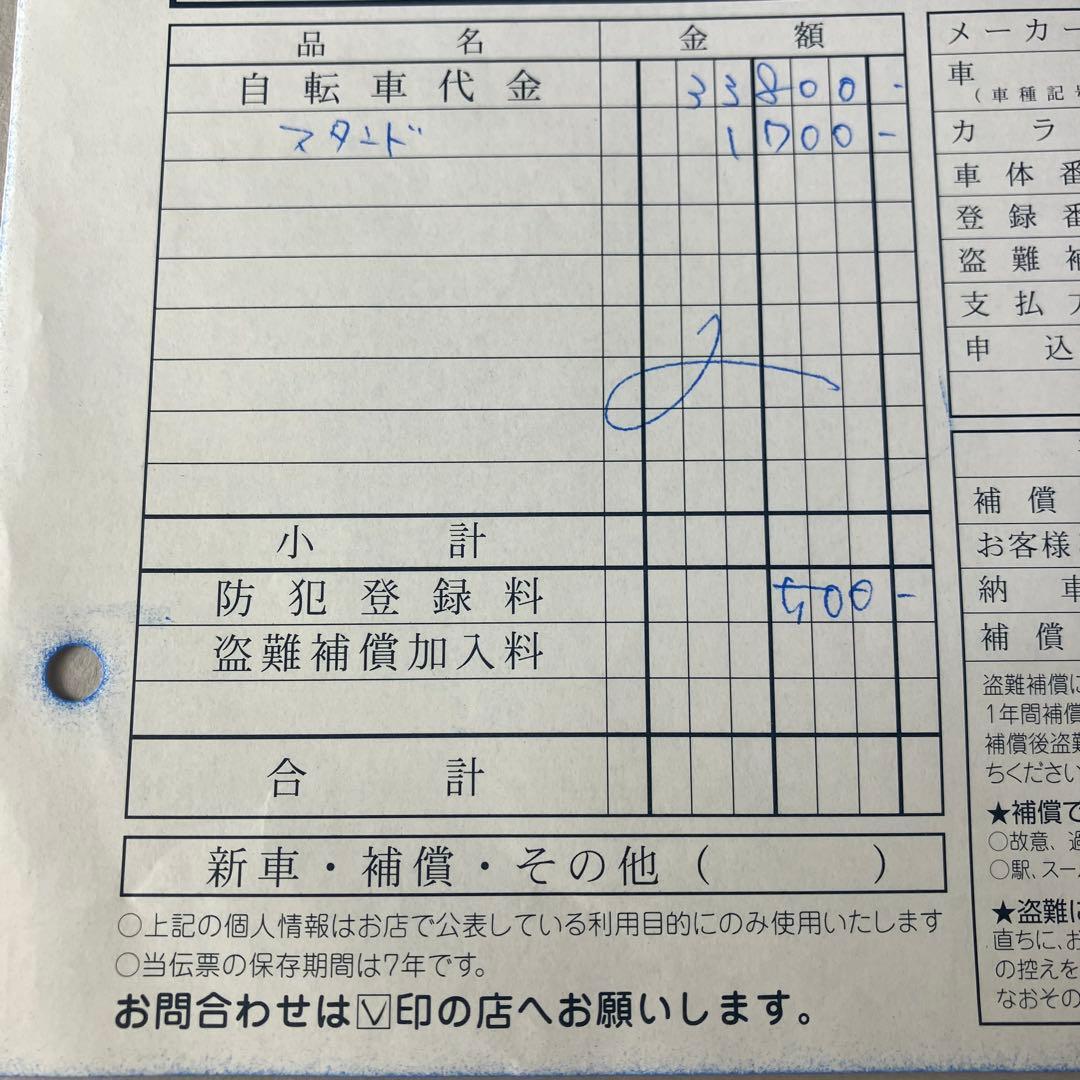 品名 金額
自転車代金 33800-
スタンド 1700-
小計
防犯登録料 500-
盗難補償加入料
合計
新車・補償・その他( )
○上記の個人情報はお店で公表している利用目的にのみ使用いたします
○当伝票の保存期間は7年です。
お問合わせは▽印の店へお願いします。
メーカー
車
(車種記号
カラ
車体番
登録番
盗難補
支払方
申込
補償
お客様
納車
補償
盗難補償に
1年間補償
補償後盗難
ちください
★補償で
○故意、過
○駅、スーパ
★盗難に
直ちに、お
の控えを
なおその